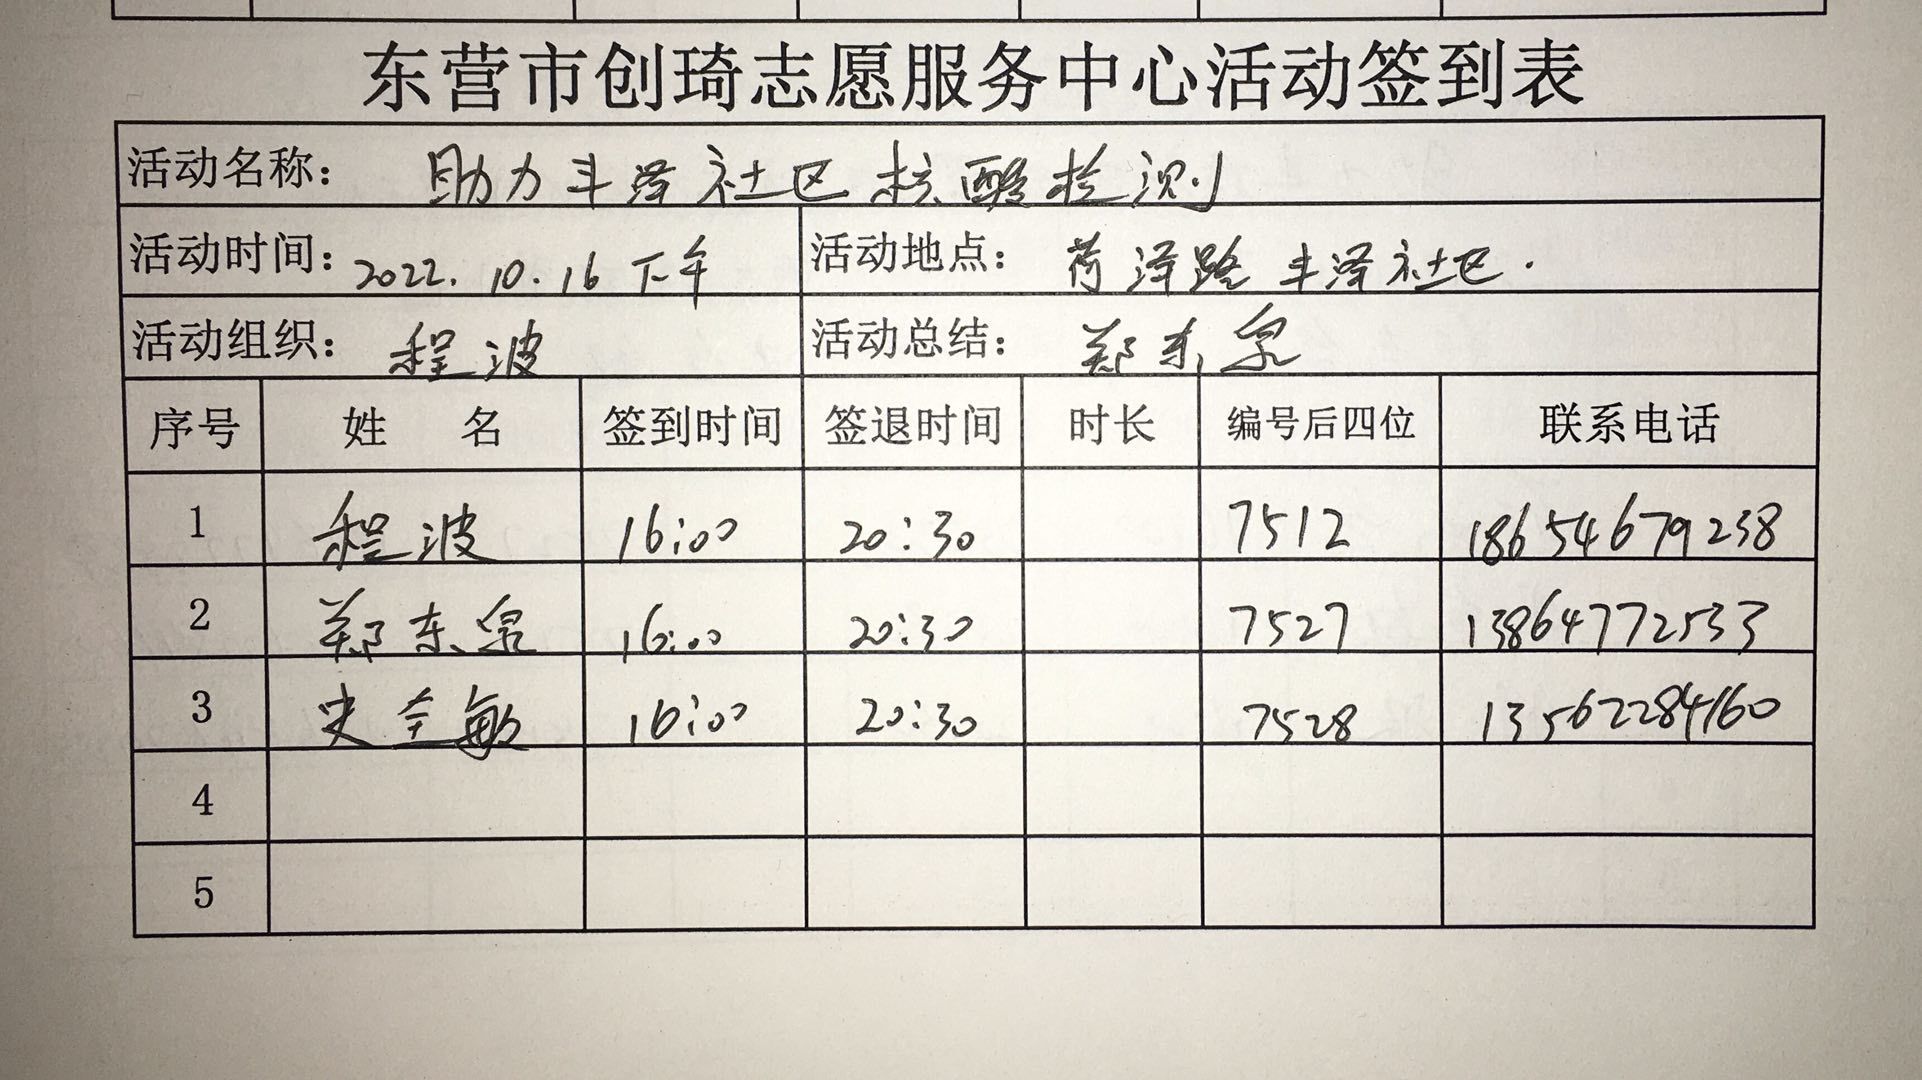 东营市创琦志愿服务中心活动签到表
活动名称： 助力丰泽社区核酸检测
活动时间： 2022.10.16下午 活动地点： 菏泽路丰泽社区.
活动组织： 程波 活动总结： 郑东泉
序号 姓名 签到时间 签退时间 时长 编号后四位 联系电话
1 程波 16:00 20:30 7512 18654679238
2 郑东泉 16:00 20:30 7527 13864772533
3 史全敏 16:00 20:30 7528 13562284160
4
5